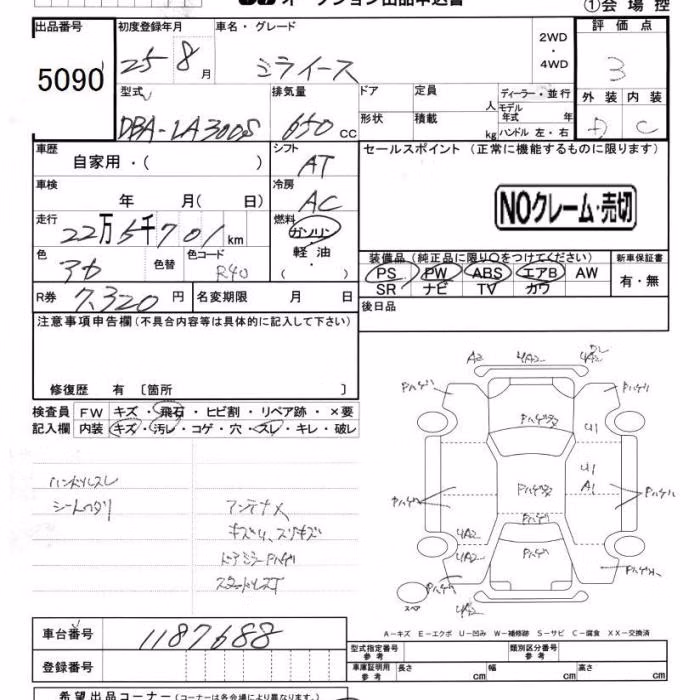 オークション出品申込書
①会場控
出品番号 初度登録年月 車名・グレード 2WD ・ 4WD 評価点
5090 25 8月 ミライース 3
型式 排気量 ドア 定員 人 ディーラー・並行 外装 内装
DBA-LA300S 650 cc 形状 積載 kg モデル年式 年 D C
ハンドル 左・右
車歴 シフト セールスポイント (正常に機能するものに限ります)
自家用・( ) AT
車検 冷房
年 月( 日) AC NOクレーム・売切
走行 燃料
22万5千701km ガソリン
軽油
・( )
色 色替 色コード 装備品 (純正品に限り○をつけてください) 新車保証書
アカ R40 PS PW ABS エアB AW 有・無
SR ナビ TV カワ
R券 7,320円 名変期限 月 日 後日品
注意事項申告欄 (不具合内容等は具体的に記入して下さい)
修復歴 有 〔箇所 〕
検査員 FW キズ・飛石・ヒビ割・リペア跡・×要
記入欄 内装 キズ・汚レ・コゲ・穴・スレ・キレ・破レ
ハンドルスレ
シートヘタリ アンテナ×
キズU、スリキズ
ドアミラーPハゲ
スタッドレスT
A2 4A2 4A2
Pハゲ Pハゲ
U1
U1
A1
Pハゲ Pハゲ
Pハゲ
4A2
4A2 Pハゲ
Pハゲ Pハゲ
スペア
A-キズ E-エクボ U-凹み W-補修跡 S-サビ C-腐食 XX-交換済
車台番号 1187688
型式指定番号 参考 類別区分番号 参考
登録番号 車庫証明用 参考 長さ cm 幅 cm 高さ cm
希望出品コーナー (コーナーは各会場により異なります。)